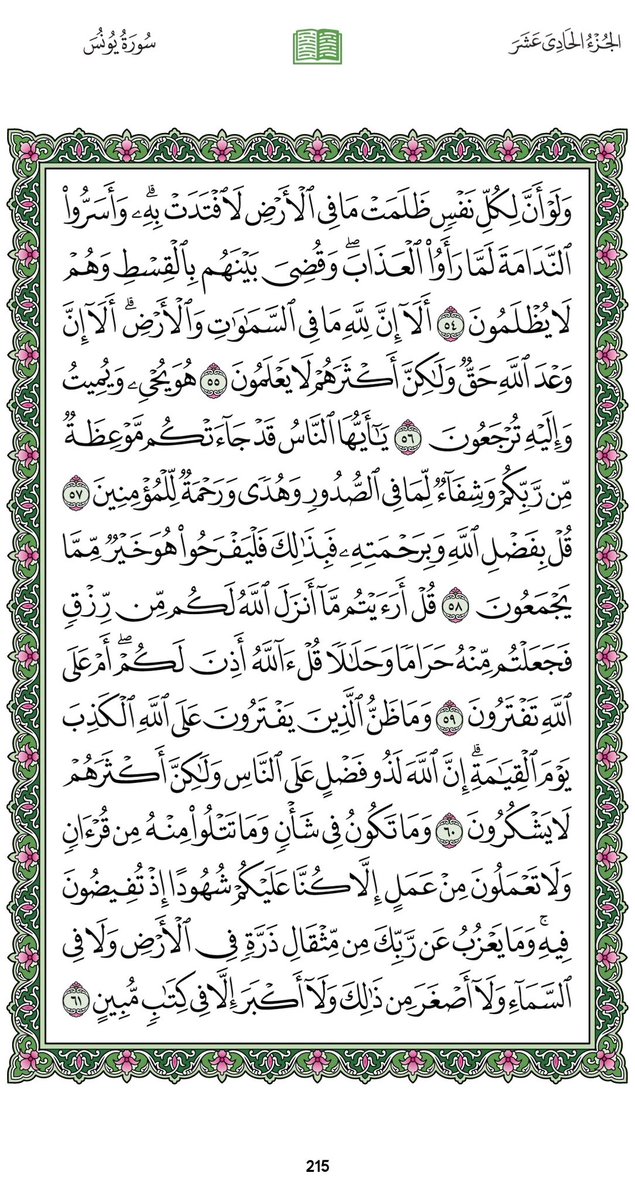 الجُزْءُ الحَادِى عَشَرَ
سُورَةُ يُونُسَ
وَلَوْ أَنَّ لِكُلِّ نَفْسٖ ظَلَمَتۡ مَا فِي ٱلۡأَرۡضِ لَٱفۡتَدَتۡ بِهِۦۗ وَأَسَرُّواْ
ٱلنَّدَامَةَ لَمَّا رَأَوُاْ ٱلۡعَذَابَۖ وَقُضِيَ بَيۡنَهُم بِٱلۡقِسۡطِ وَهُمۡ
لَا يُظۡلَمُونَ ٥٤ أَلَآ إِنَّ لِلَّهِ مَا فِي ٱلسَّمَٰوَٰتِ وَٱلۡأَرۡضِۗ أَلَآ إِنَّ
وَعۡدَ ٱللَّهِ حَقّٞ وَلَٰكِنَّ أَكۡثَرَهُمۡ لَا يَعۡلَمُونَ ٥٥ هُوَ يُحۡيِۦ وَيُمِيتُ
وَإِلَيۡهِ تُرۡجَعُونَ ٥٦ يَٰٓأَيُّهَا ٱلنَّاسُ قَدۡ جَآءَتۡكُم مَّوۡعِظَةٞ
مِّن رَّبِّكُمۡ وَشِفَآءٞ لِّمَا فِي ٱلصُّدُورِ وَهُدٗى وَرَحۡمَةٞ لِّلۡمُؤۡمِنِينَ ٥٧
قُلۡ بِفَضۡلِ ٱللَّهِ وَبِرَحۡمَتِهِۦ فَبِذَٰلِكَ فَلۡيَفۡرَحُواْ هُوَ خَيۡرٞ مِّمَّا
يَجۡمَعُونَ ٥٨ قُلۡ أَرَءَيۡتُم مَّآ أَنزَلَ ٱللَّهُ لَكُم مِّن رِّزۡقٖ
فَجَعَلۡتُم مِّنۡهُ حَرَامٗا وَحَلَٰلٗا قُلۡ ءَآللَّهُ أَذِنَ لَكُمۡۖ أَمۡ عَلَى
ٱللَّهِ تَفۡتَرُونَ ٥٩ وَمَا ظَنُّ ٱلَّذِينَ يَفۡتَرُونَ عَلَى ٱللَّهِ ٱلۡكَذِبَ
يَوۡمَ ٱلۡقِيَٰمَةِۗ إِنَّ ٱللَّهَ لَذُو فَضۡلٍ عَلَى ٱلنَّاسِ وَلَٰكِنَّ أَكۡثَرَهُمۡ
لَا يَشۡكُرُونَ ٦٠ وَمَا تَكُونُ فِي شَأۡنٖ وَمَا تَتۡلُواْ مِنۡهُ مِن قُرۡءَانٖ
وَلَا تَعۡمَلُونَ مِنۡ عَمَلٍ إِلَّا كُنَّا عَلَيۡكُمۡ شُهُودًا إِذۡ تُفِيضُونَ
فِيهِۚ وَمَا يَعۡزُبُ عَن رَّبِّكَ مِن مِّثۡقَالِ ذَرَّةٖ فِي ٱلۡأَرۡضِ وَلَا فِي
ٱلسَّمَآءِ وَلَآ أَصۡغَرَ مِن ذَٰلِكَ وَلَآ أَكۡبَرَ إِلَّا فِي كِتَٰبٖ مُّبِينٍ ٦١
215